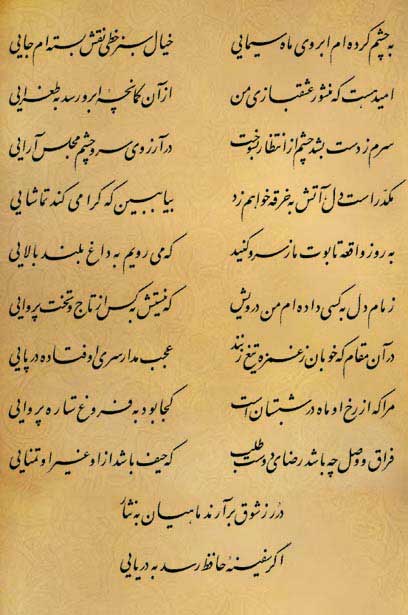 به چشم کرده ام ابروی ماه سیمایی خیال سبز خطی نقش بسته ام جایی
امید هست که منشور عشقبازی من از آن کمانچهٔ ابرو رسد به طغرایی
سرم ز دست بشد چشم از انتظار بسوخت در آرزوی سر و چشم مجلس آرایی
مکدّر است دل آتش به خرقه خواهم زد بیا ببین که کرا می کند تماشایی
به روز واقعه تابوت ما ز سرو کنید که می رویم به داغ بلند بالایی
زمام دل به کسی داده ام من درویش که نیستش به کس از تاج و تخت پروایی
در آن مقام که خوبان ز غمزه تیغ زنند عجب مدار سری اوفتاده در پایی
مرا که از رخ او ماه در شبستان است کجا بود به فروغ ستاره پروایی
فراق و وصل چه باشد رضای دوست طلب که حیف باشد از او غیر او تمنایی
درر ز شوق برآرند ماهیان به نثار
اگر سفینهٔ حافظ رسد به دریایی